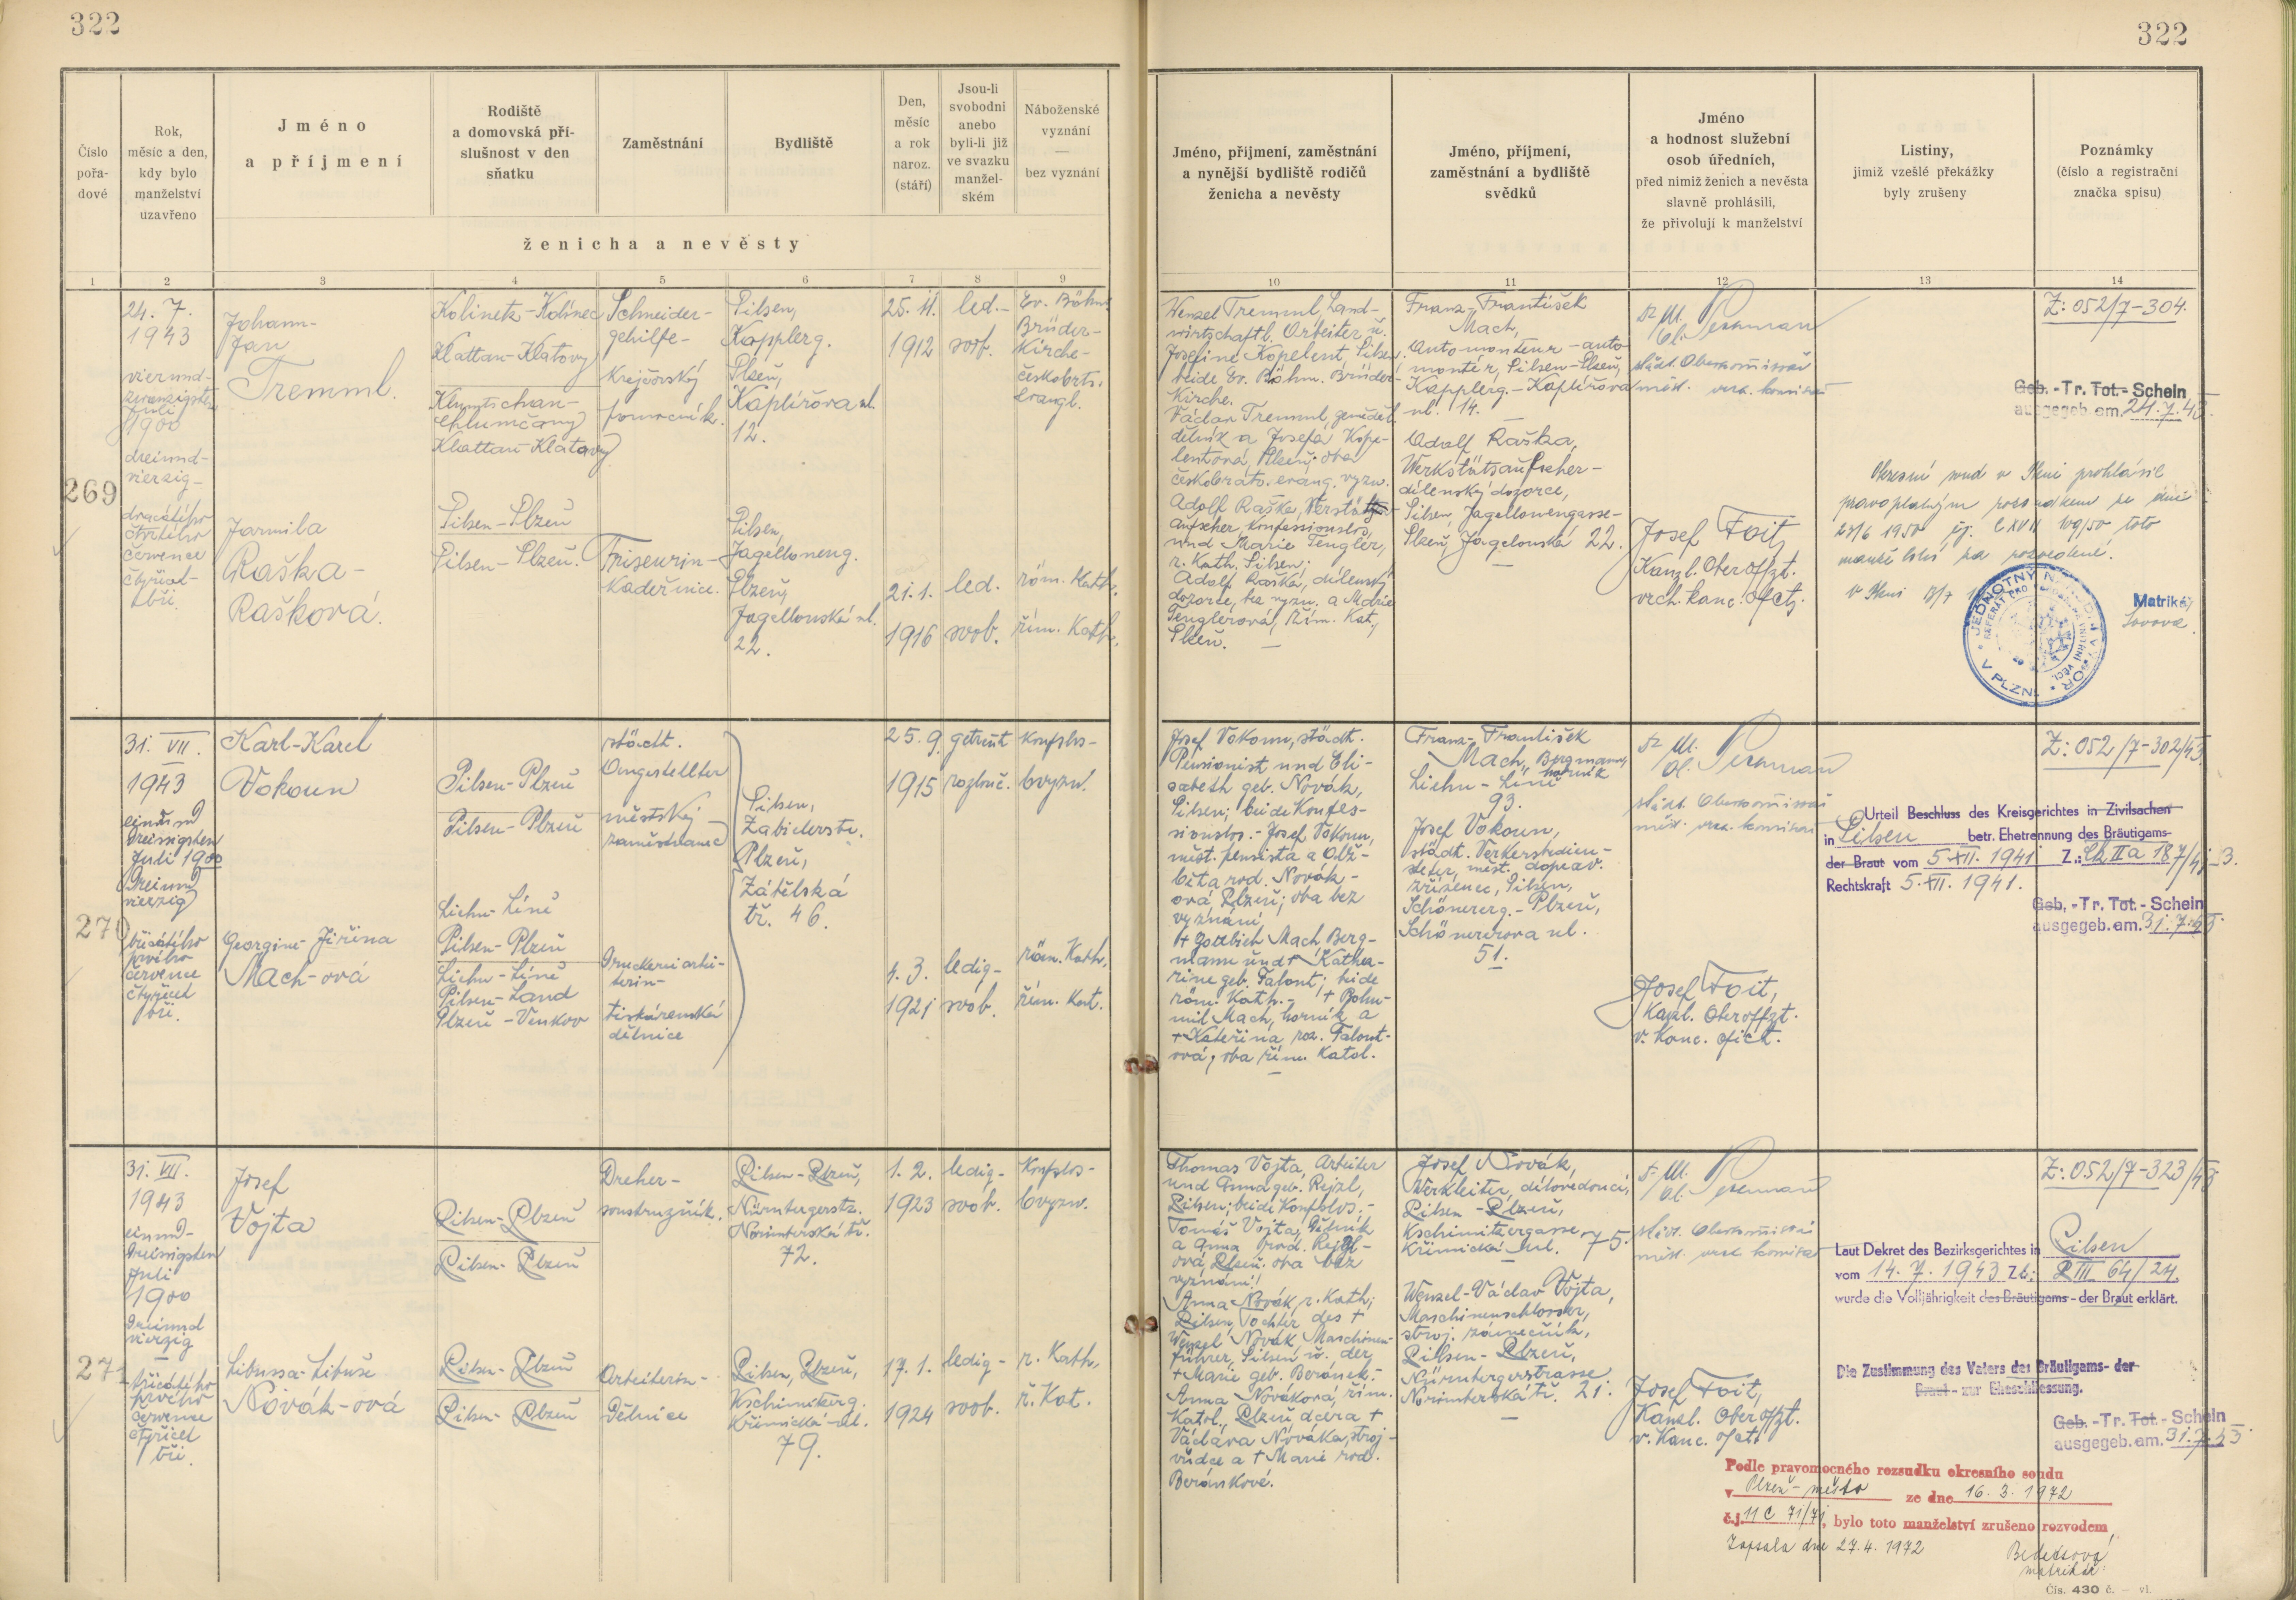 322
322
Číslo
pořa-
dové
Rok,
měsíc a den,
kdy bylo
manželství
uzavřeno
Jméno
a příjmení
Rodiště
a domovská pří-
slušnost v den
sňatku
Zaměstnání
Bydliště
Den,
měsíc
a rok
naroz.
(stáří)
Jsou-li
svobodni
anebo
byli-li již
ve svazku
manžel-
ském
Náboženské
vyznání
—
bez vyznání
ženicha a nevěsty
Jméno, příjmení, zaměstnání
a nynější bydliště rodičů
ženicha a nevěsty
Jméno, příjmení,
zaměstnání a bydliště
svědků
Jméno
a hodnost služební
osob úředních,
před nimiž ženich a nevěsta
slavně prohlásili,
že přivolují k manželství
Listiny,
jimiž vzešlé překážky
byly zrušeny
Poznámky
(číslo a registrační
značka spisu)
1 2 3 4 5 6 7 8 9
10 11 12 13 14
269
24. 7.
1943
vierund-
zwanzigsten
Juli
1900
dreiund-
vierzig-
dvacátého
čtvrtého
července
čtyřicet-
tři.
Johann-
Jan
Tremml.
Jarmila
Raška-
Rašková.
Kolinetz-Kolinec
Klattau-Klatovy
Klumtschan-
Chlumčany
Klattau-Klatovy
Pilsen-Plzeň
Pilsen-Plzeň.
Schneider-
gehilfe-
Krejčovský
pomocník.
Friseurin-
Kadeřnice.
Pilsen,
Kopplerg.
Plzeň,
Kaplířova ul.
12.
Pilsen,
Jagelloneng.
Plzeň,
Jagellonská ul.
22.
25. 11.
1912
led.-
svob.
Ev. Böhm.
Brüder-
Kirche-
českobrts.
evangl.
21. 1.
1916
led.
svob.
röm. Kath.
řím. Kath.
Wenzel Tremml, Land-
wirtschaftl. Arbeiter u.
Josefine Kopelent, Pilsen,
beide Ev. Böhm. Brüder-
Kirche.
Václav Tremml, zeměděl.
dělník a Josefa Kope-
lentová, Plzeň, oba
českobrats. evang. vyzn.
Adolf Raška, Werkstätts-
aufseher, konfessionslos,
und Marie Tengler,
r. Kath. Pilsen;
Adolf Raška, dílenský
dozorce, bez vyzn. a Marie
Tenglerová, Řím. Kat.,
Plzeň.
Franz-František
Mach,
Automonteur-auto-
montér, Pilsen-Plzeň,
Kapplerg.-Kaplířova
ul. 14.
Adolf Raška,
Werkstättsaufseher-
dílenský dozorce,
Pilsen, Jagellonengasse-
Plzeň, Jagelonská 22.
städt. Oberkommissär
měst. vrch. komisař
Josef Foit,
Kanzl. Oberoffzt.
vrch. kanc. ofctz.
Okresní soud v Plzni prohlásil
pravoplatným rozsudkem ze dne
28/6 1950 čj. C XVII 109/50 toto
manželství za rozvedené.
JEDNOTNÝ NÁRODNÍ VÝBOR
V PLZNI
Matrika
Z: 052/7-304.
Geb. -Tr. Tot.- Schein
ausgegeb. am. 24. 7. 43.
270
31. VII.
1943
einund
dreissigsten
Juli 1900
dreiund
vierzig
třicátého
prvého
července
čtyřicet
tři.
Karl-Karel
Vokoun
Georgine-Jiřina
Mach-ová
Pilsen-Plzeň
Pilsen-Plzeň
Lichn-Líně
Pilsen-Plzeň
Lichn-Líně
Pilsen-Land
Plzeň-Venkov
städt.
Angestellter
městský
zaměstnanec
Druckereiarbei-
terin-
tiskárenská
dělnice
Pilsen,
Plzeň,
Zátělská
tř. 46.
25. 9.
1915
getrennt
rozlouč.
Konfslos-
bvyzn.
4. 3.
1921
ledig-
svob.
röm. Kath.
řím. Kat.
Josef Vokoun, städt.
Pensionist und Eli-
sabeth geb. Novák,
Pilsen; beide Konfes-
sionslos.-Josef Vokoun,
měst. pensista a Alž-
běta rod. Novák-
ová Plzeň; oba bez
vyznání
+ Gottlieb Mach Berg-
mann und + Katha-
rine geb. Falout; beide
röm. Kath.- + Bohu-
mil Mach, horník a
+ Kateřina roz. Falout-
ová, oba řím. Katol.
Franz-František
Mach, Bergmann
horník
Lichn-Líně
93.
Josef Vokoun,
städt. Verkersbedien-
steter, měst. doprav.
zřízenec, Pilsen,
Schönererg.-Plzeň,
Schönererova ul.
51.
städt. Oberkommissär
měst. vrch. komisař
Josef Foit,
Kanzl. Oberoffzt.
v. Kanc. ofict.
Z: 052/7-302/43
Urteil Beschluss des Kreisgerichtes in Zivilsachen
in Pilsen betr. Ehetrennung des Bräutigams-
der Braut vom 5. XII. 1941 Z.: Ck II a 187/41-3.
Rechtskraft 5. XII. 1941.
Geb. -Tr. Tot.- Schein
ausgegeb. am. 31. 7. 43
271
31. VII.
1943
einund-
dreissigsten
Juli
1900
dreiund
vierzig
třicátého
prvého
července
čtyřicet
tři.
Josef
Vojta
Libussa-Libuše
Novák-ová
Pilsen-Plzeň
Pilsen-Plzeň
Pilsen-Plzeň
Pilsen-Plzeň
Dreher-
soustružník.
Arbeiterin-
Dělnice
Pilsen-Plzeň,
Nürnbergerstr.
Norimberská tř.
72.
Pilsen, Plzeň,
Kschimitzerg.
Křimická ul.
79.
1. 2.
1923
ledig-
svob.
Konfslos-
bvyzn.
17. 1.
1924
ledig-
svob.
r. Kath.
ř. Kat.
Thomas Vojta, Arbeiter
und Anna geb. Rejzl,
Pilsen; beide Konfslos.-
Tomáš Vojta, Dělník
a Anna rod. Rejzl-
ová, Plzeň. oba bez
vyznání!
Anna Novák, r. Kath;
Pilsen, Tochter des +
Wenzel Novák, Maschinen-
führer, Pilsen u. der
+ Marie geb. Beránek.
Anna Nováková, řím.
Katol., Plzeň dcera +
Václava Nováka, stroj-
vůdce a + Marie rod.
Beránkové.
Josef Novák,
Werkleiter, dílovedoucí,
Pilsen-Plzeň,
Kschimitzergasse
Křimická ul. 75.
Wenzel-Václav Vojta,
Maschinenschlosser,
stroj. zámečník,
Pilsen-Plzeň,
Nürnbergerstrasse
Norimberská tř. 21.
städt. Oberkommissär
měst. vrch. komisař
Josef Foit,
Kanzl. Oberoffzt.
v. Kanc. ofct.
Z: 052/7-323/43
Laut Dekret des Bezirksgerichtes in Pilsen
vom 14. 7. 1943 Zl: P III 64/24.
wurde die Volljährigkeit des Bräutigams - der Braut erklärt.
Die Zustimmung des Vaters des Bräutigams- der
Braut - zur Eheschliessung.
Geb. -Tr. Tot.- Schein
ausgegeb. am. 31. 7. 43
Podle pravomocného rozsudku okresního soudu
v Plzeň-město ze dne 16. 3. 1972
č.j. 11 C 71/71, bylo toto manželství zrušeno rozvodem
Zapsala dne 27. 4. 1972
matrikář
Čís. 430 č. — vl.